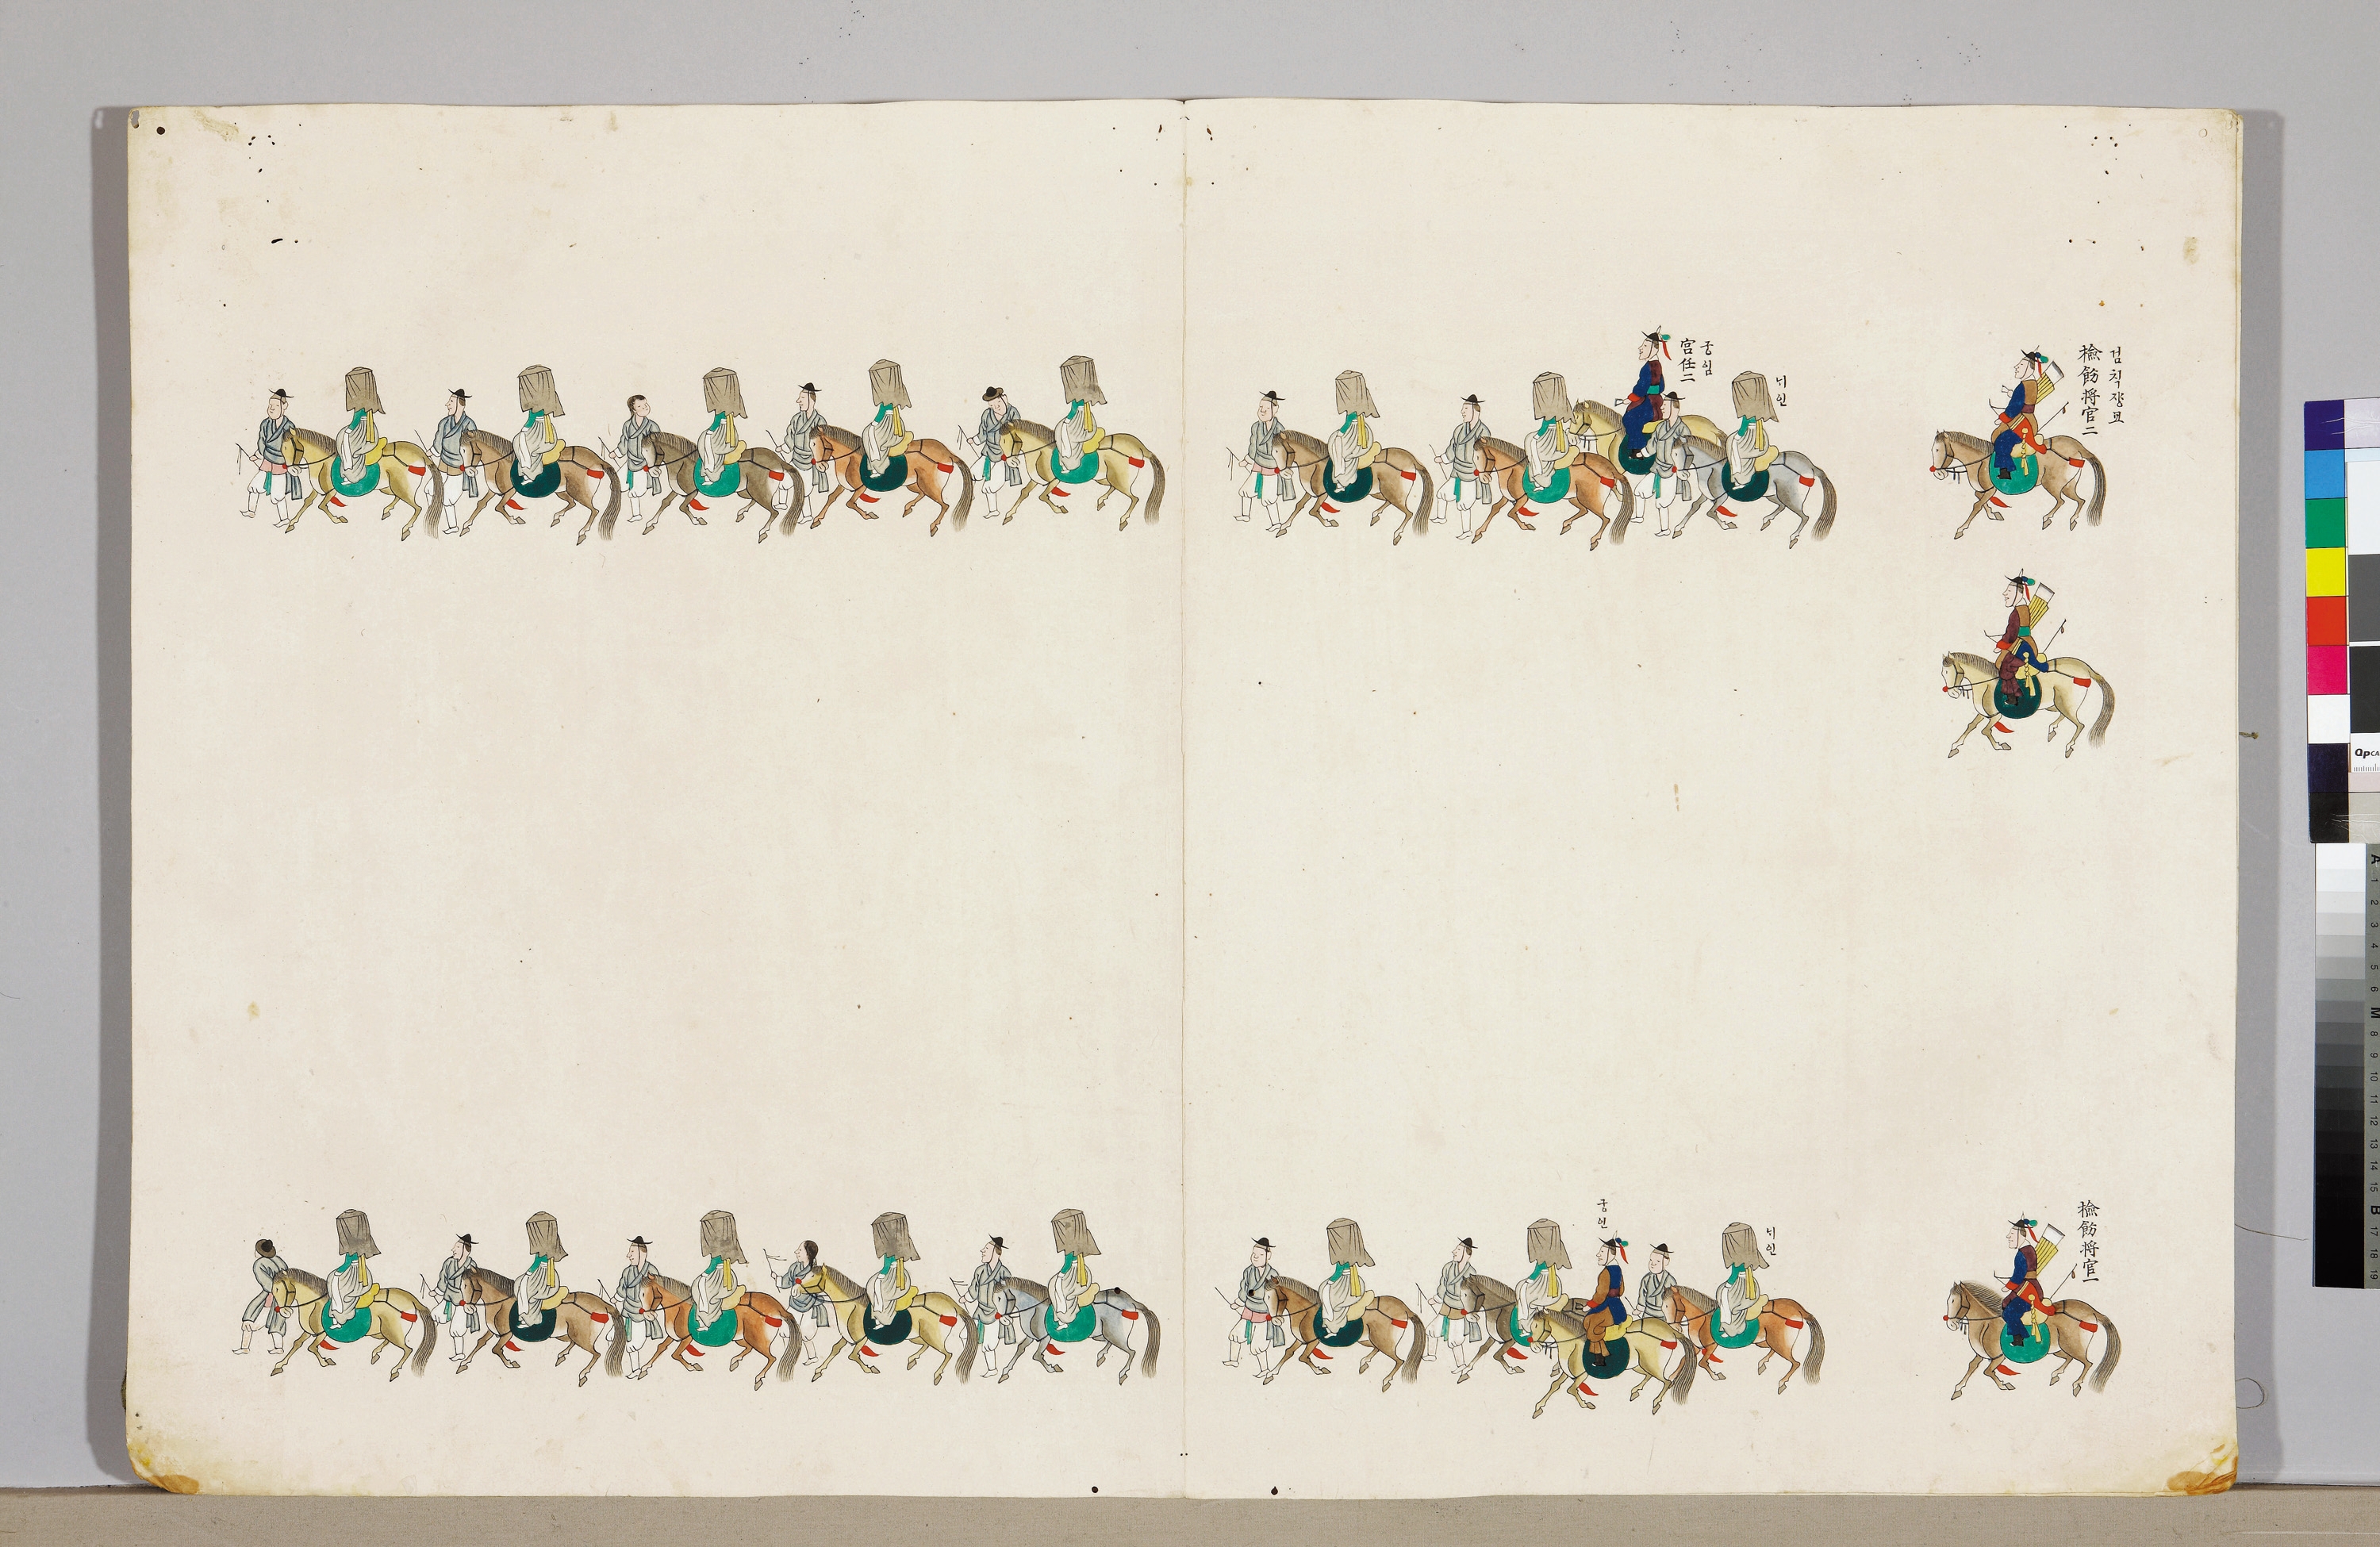 검칙쟝교
檢飭将官二
궁임
宮任二
늬인
檢飭将官一
늬인
궁인
QpCA
A 1 2 3 4 5 6 M 8 9 10 11 12 13 14 15 B 17 18 19